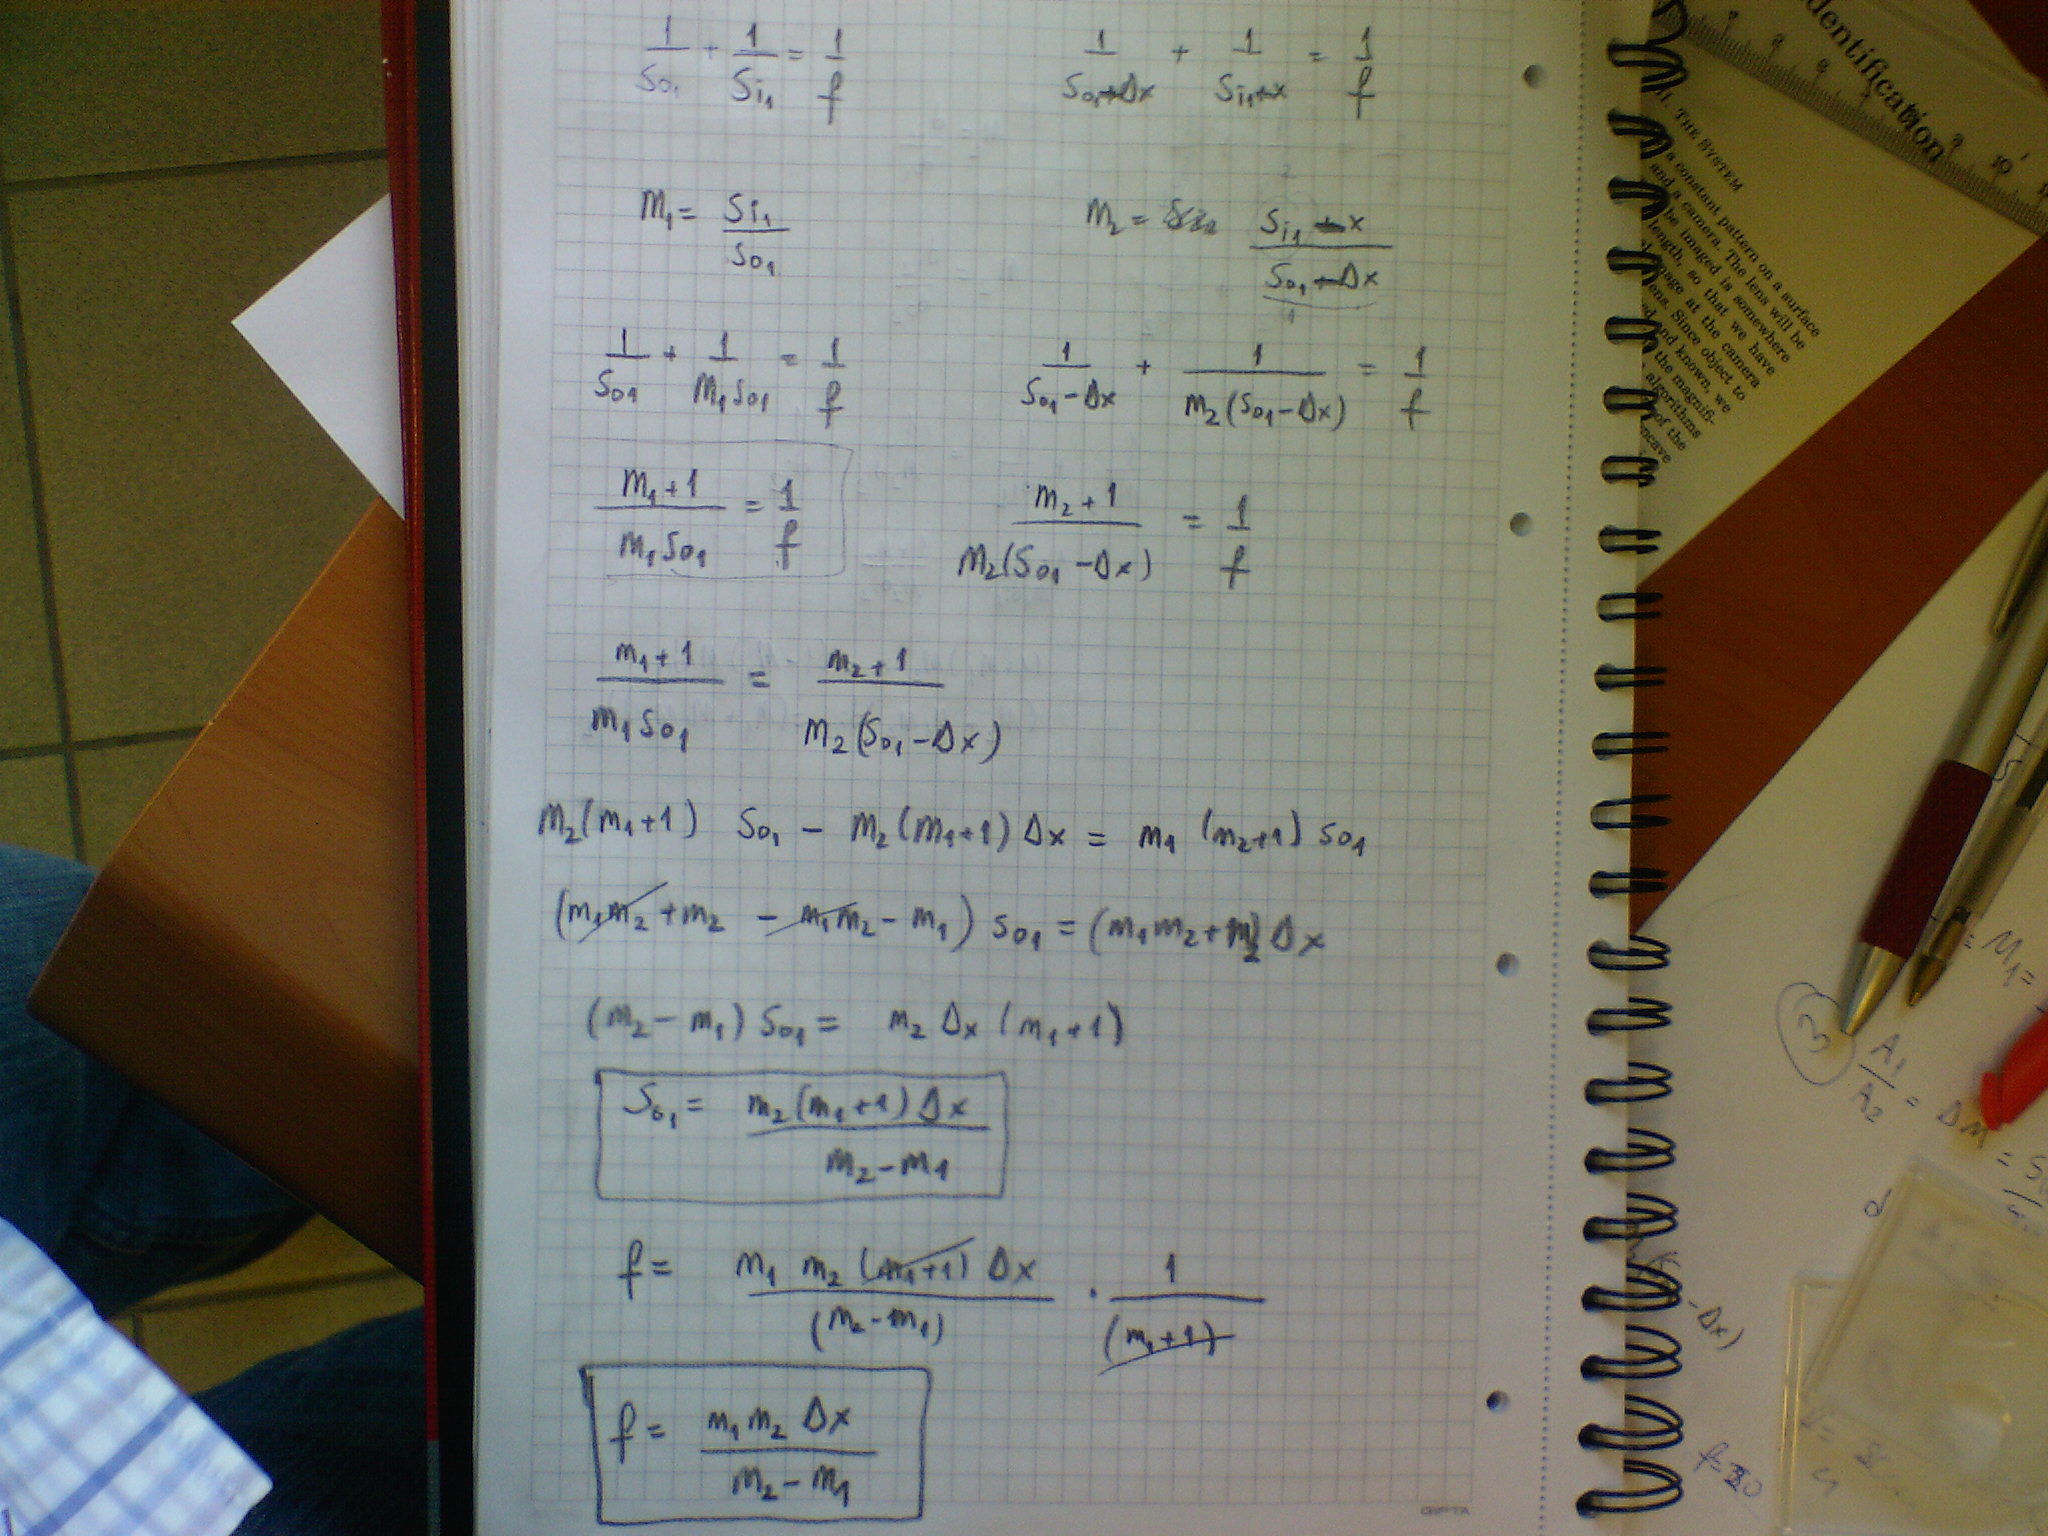 1/So₁ + 1/Si₁ = 1/f    1/(So₁-Δx) + 1/(Si₁+x) = 1/f
m₁ = Si₁/So₁    m₂ = (Si₁ - x)/(So₁-Δx)
1/So₁ + 1/(m₁So₁) = 1/f    1/(So₁-Δx) + 1/(m₂(So₁-Δx)) = 1/f
(m₁+1)/(m₁So₁) = 1/f    (m₂+1)/(m₂(So₁-Δx)) = 1/f
(m₁+1)/(m₁So₁) = (m₂+1)/(m₂(So₁-Δx))
m₂(m₁+1) So₁ - m₂(m₁+1)Δx = m₁(m₂+1)So₁
(m₁m₂+m₂ - m₁m₂ - m₁)So₁ = (m₁m₂+m₂)Δx
(m₂-m₁)So₁ = m₂Δx(m₁+1)
So₁ = m₂(m₁+1)Δx/(m₂-m₁)
f = m₁ m₂(m₁+1)Δx/(m₂-m₁) · 1/(m₁+1)
f = m₁m₂Δx/(m₂-m₁)
dentification
THE SYSTEM
a constant pattern on a surface
and a camera. The lens will be
be imaged is somewhere
length, so that we have
image at the camera
lens. Since object to
and known, we
the magnifi-
algorithms
of the
ncave
7 8 9 10
= M₁ =
3 A₁/A₂ = ΔM
d
-Δx)